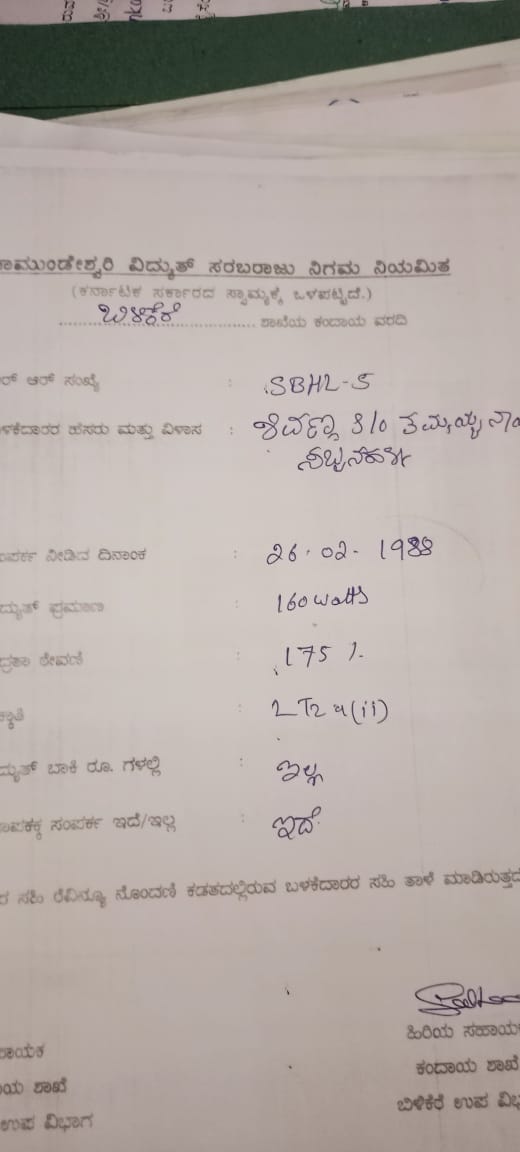 ಾಮುಂಡೇಶ್ವರಿ ವಿದ್ಯುತ್ ಸರಬರಾಜು ನಿಗಮ ನಿಯಮಿತ
(ಕರ್ನಾಟಕ ಸರ್ಕಾರದ ಸ್ವಾಮ್ಯಕ್ಕೆ ಒಳಪಟ್ಟಿದೆ.)
ಬಿಳಿಕೆರೆ ಶಾಖೆಯ ಕಂದಾಯ ವರದಿ
ರ್ ಆರ್ ಸಂಖ್ಯೆ : SBHL-5
ಳಕೆದಾರರ ಹೆಸರು ಮತ್ತು ವಿಳಾಸ : S/o ತಮ್ಮಯ್ಯ ನಾಯ
ಂಪರ್ಕ ನೀಡಿದ ದಿನಾಂಕ : 26.02.1988
ದ್ಯುತ್ ಪ್ರಮಾಣ : 160 watts
ದ್ರತಾ ಠೇವಣಿ : 175/-
: LT2 a(ii)
ದ್ಯುತ್ ಬಾಕಿ ರೂ. ಗಳಲ್ಲಿ : ಇಲ್ಲ
ಾಪಕಕ್ಕೆ ಸಂಪರ್ಕ ಇದೆ/ಇಲ್ಲ : ಇದೆ
ರ ಸಹಿ ರೆವಿನ್ಯೂ ನೊಂದಣಿ ಕಡತದಲ್ಲಿರುವ ಬಳಕೆದಾರರ ಸಹಿ ತಾಳೆ ಮಾಡಿರುತ್ತದೆ
ಹಿರಿಯ ಸಹಾಯಕ
ಾಯಕ
ಕಂದಾಯ ಶಾಖೆ
ಾಯ ಶಾಖೆ
ಬಿಳಿಕೆರೆ ಉಪ ವಿಭ
ಉಪ ವಿಭಾಗ